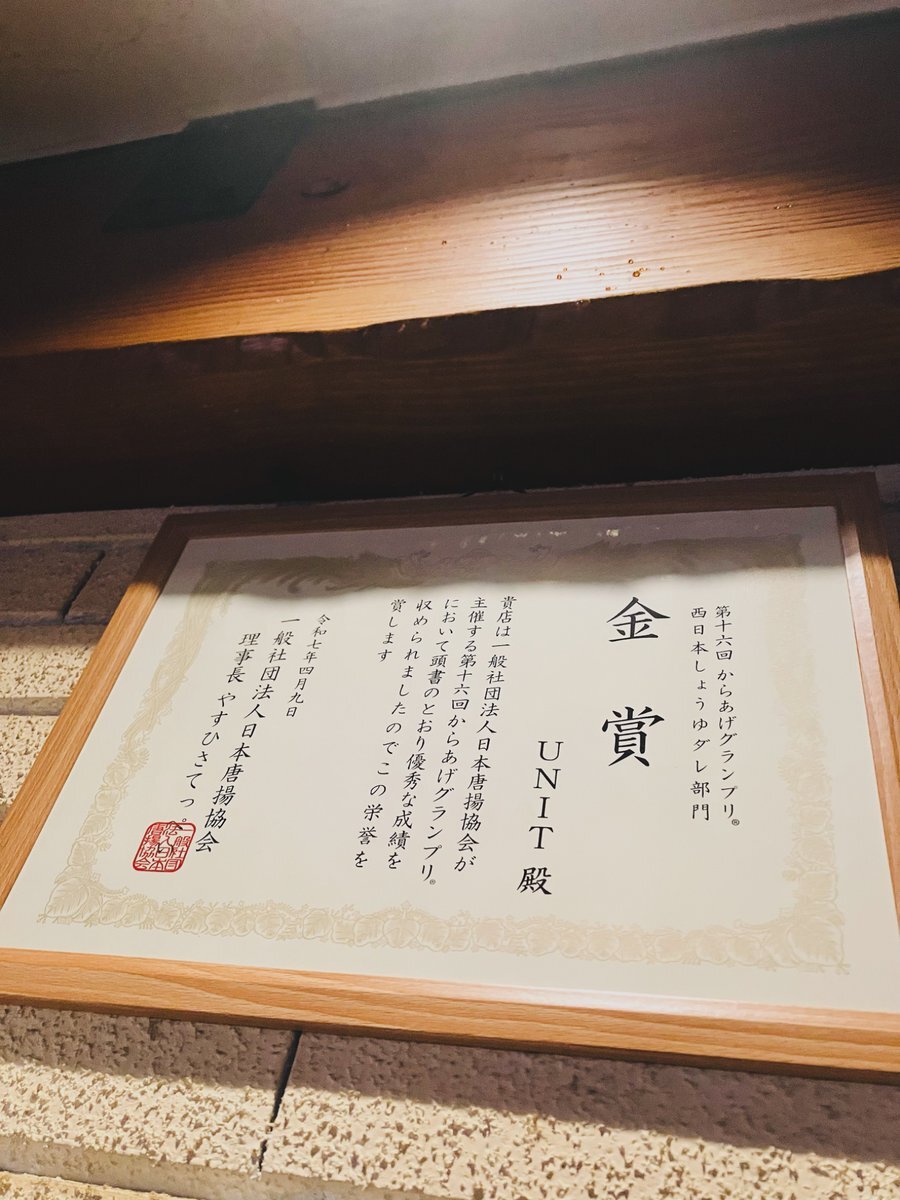 第十六回 からあげグランプリ®
西日本しょうゆダレ部門
金賞
UNIT 殿
貴店は一般社団法人日本唐揚協会が
主催する第十六回からあげグランプリ®
において頭書のとおり優秀な成績を
収められましたのでこの栄誉を
賞します
令和七年四月九日
一般社団法人日本唐揚協会
理事長 やすひさてっ。